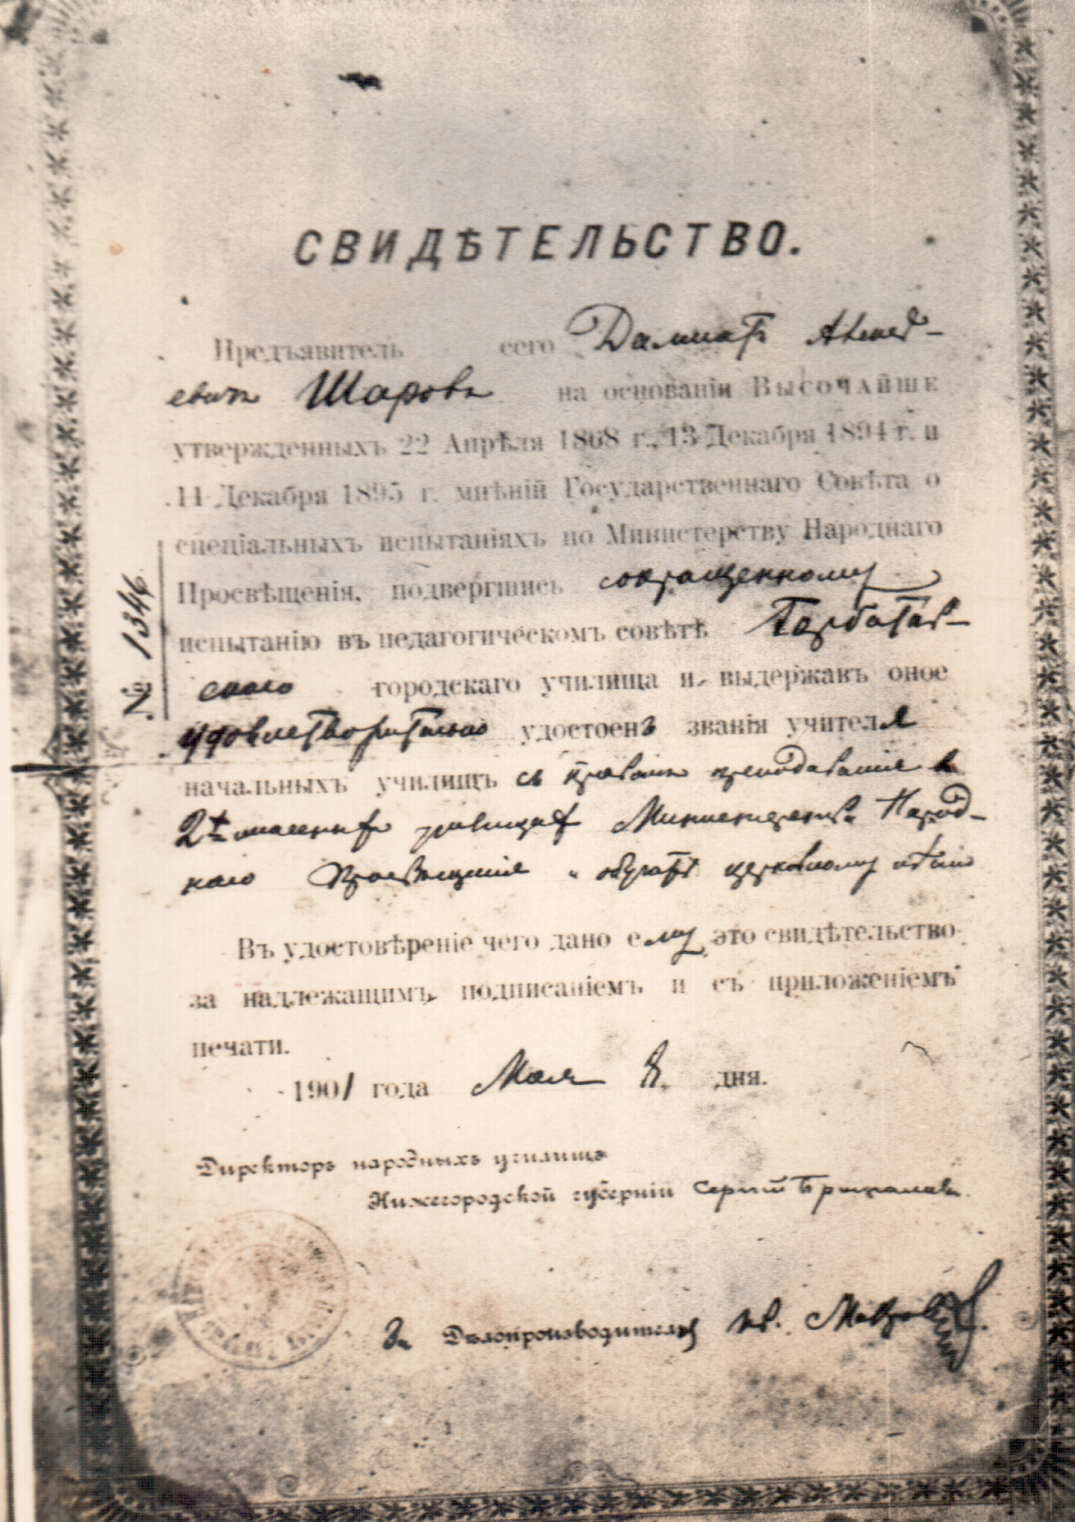 СВИДѢТЕЛЬСТВО.
Предъявитель сего Далматъ
евичъ Шаровъ на основаніи Высочайше
утвержденныхъ 22 Апрѣля 1868 г., 13 Декабря 1894 г. и
11 Декабря 1895 г. мнѣній Государственнаго Совѣта о
спеціальныхъ испытаніяхъ по Министерству Народнаго
Просвѣщенія, подвергшись сокращенному
испытанію въ педагогическомъ совѣтѣ Горбатов-
скаго городскаго училища и, выдержавъ оное
удовлетворительно удостоенъ званія учителя
начальныхъ училищъ съ правомъ преподаванія в
2хъ классныхъ училищахъ Министерства Народ-
наго Просвѣщенія и обучать церковному пѣнію
Въ удостовѣреніе чего дано ему это свидѣтельство
за надлежащимъ подписаніемъ и съ приложеніемъ
печати.
1901 года Мая 8 дня.
Директоръ народныхъ училищъ
Нижегородской губерніи Сергій
За Дѣлопроизводителя
№ 1344.